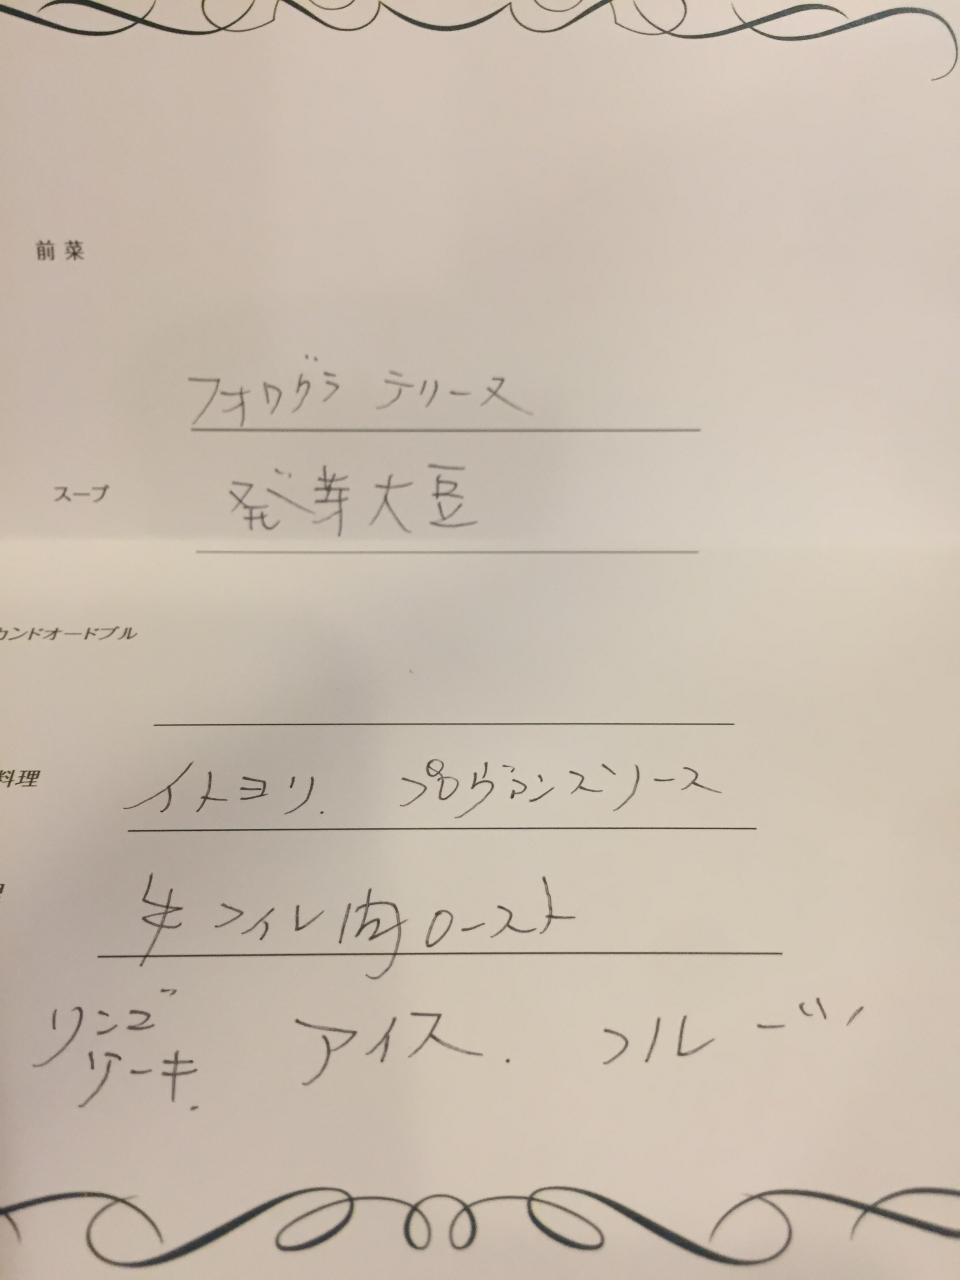 前菜
フォワグラ テリーヌ
スープ
発芽大豆
カンドオードブル
料理
イトヨリ. プロヴァンスソース
牛フィレ肉ロースト
リンゴ アイス. フルーツ
ケーキ.